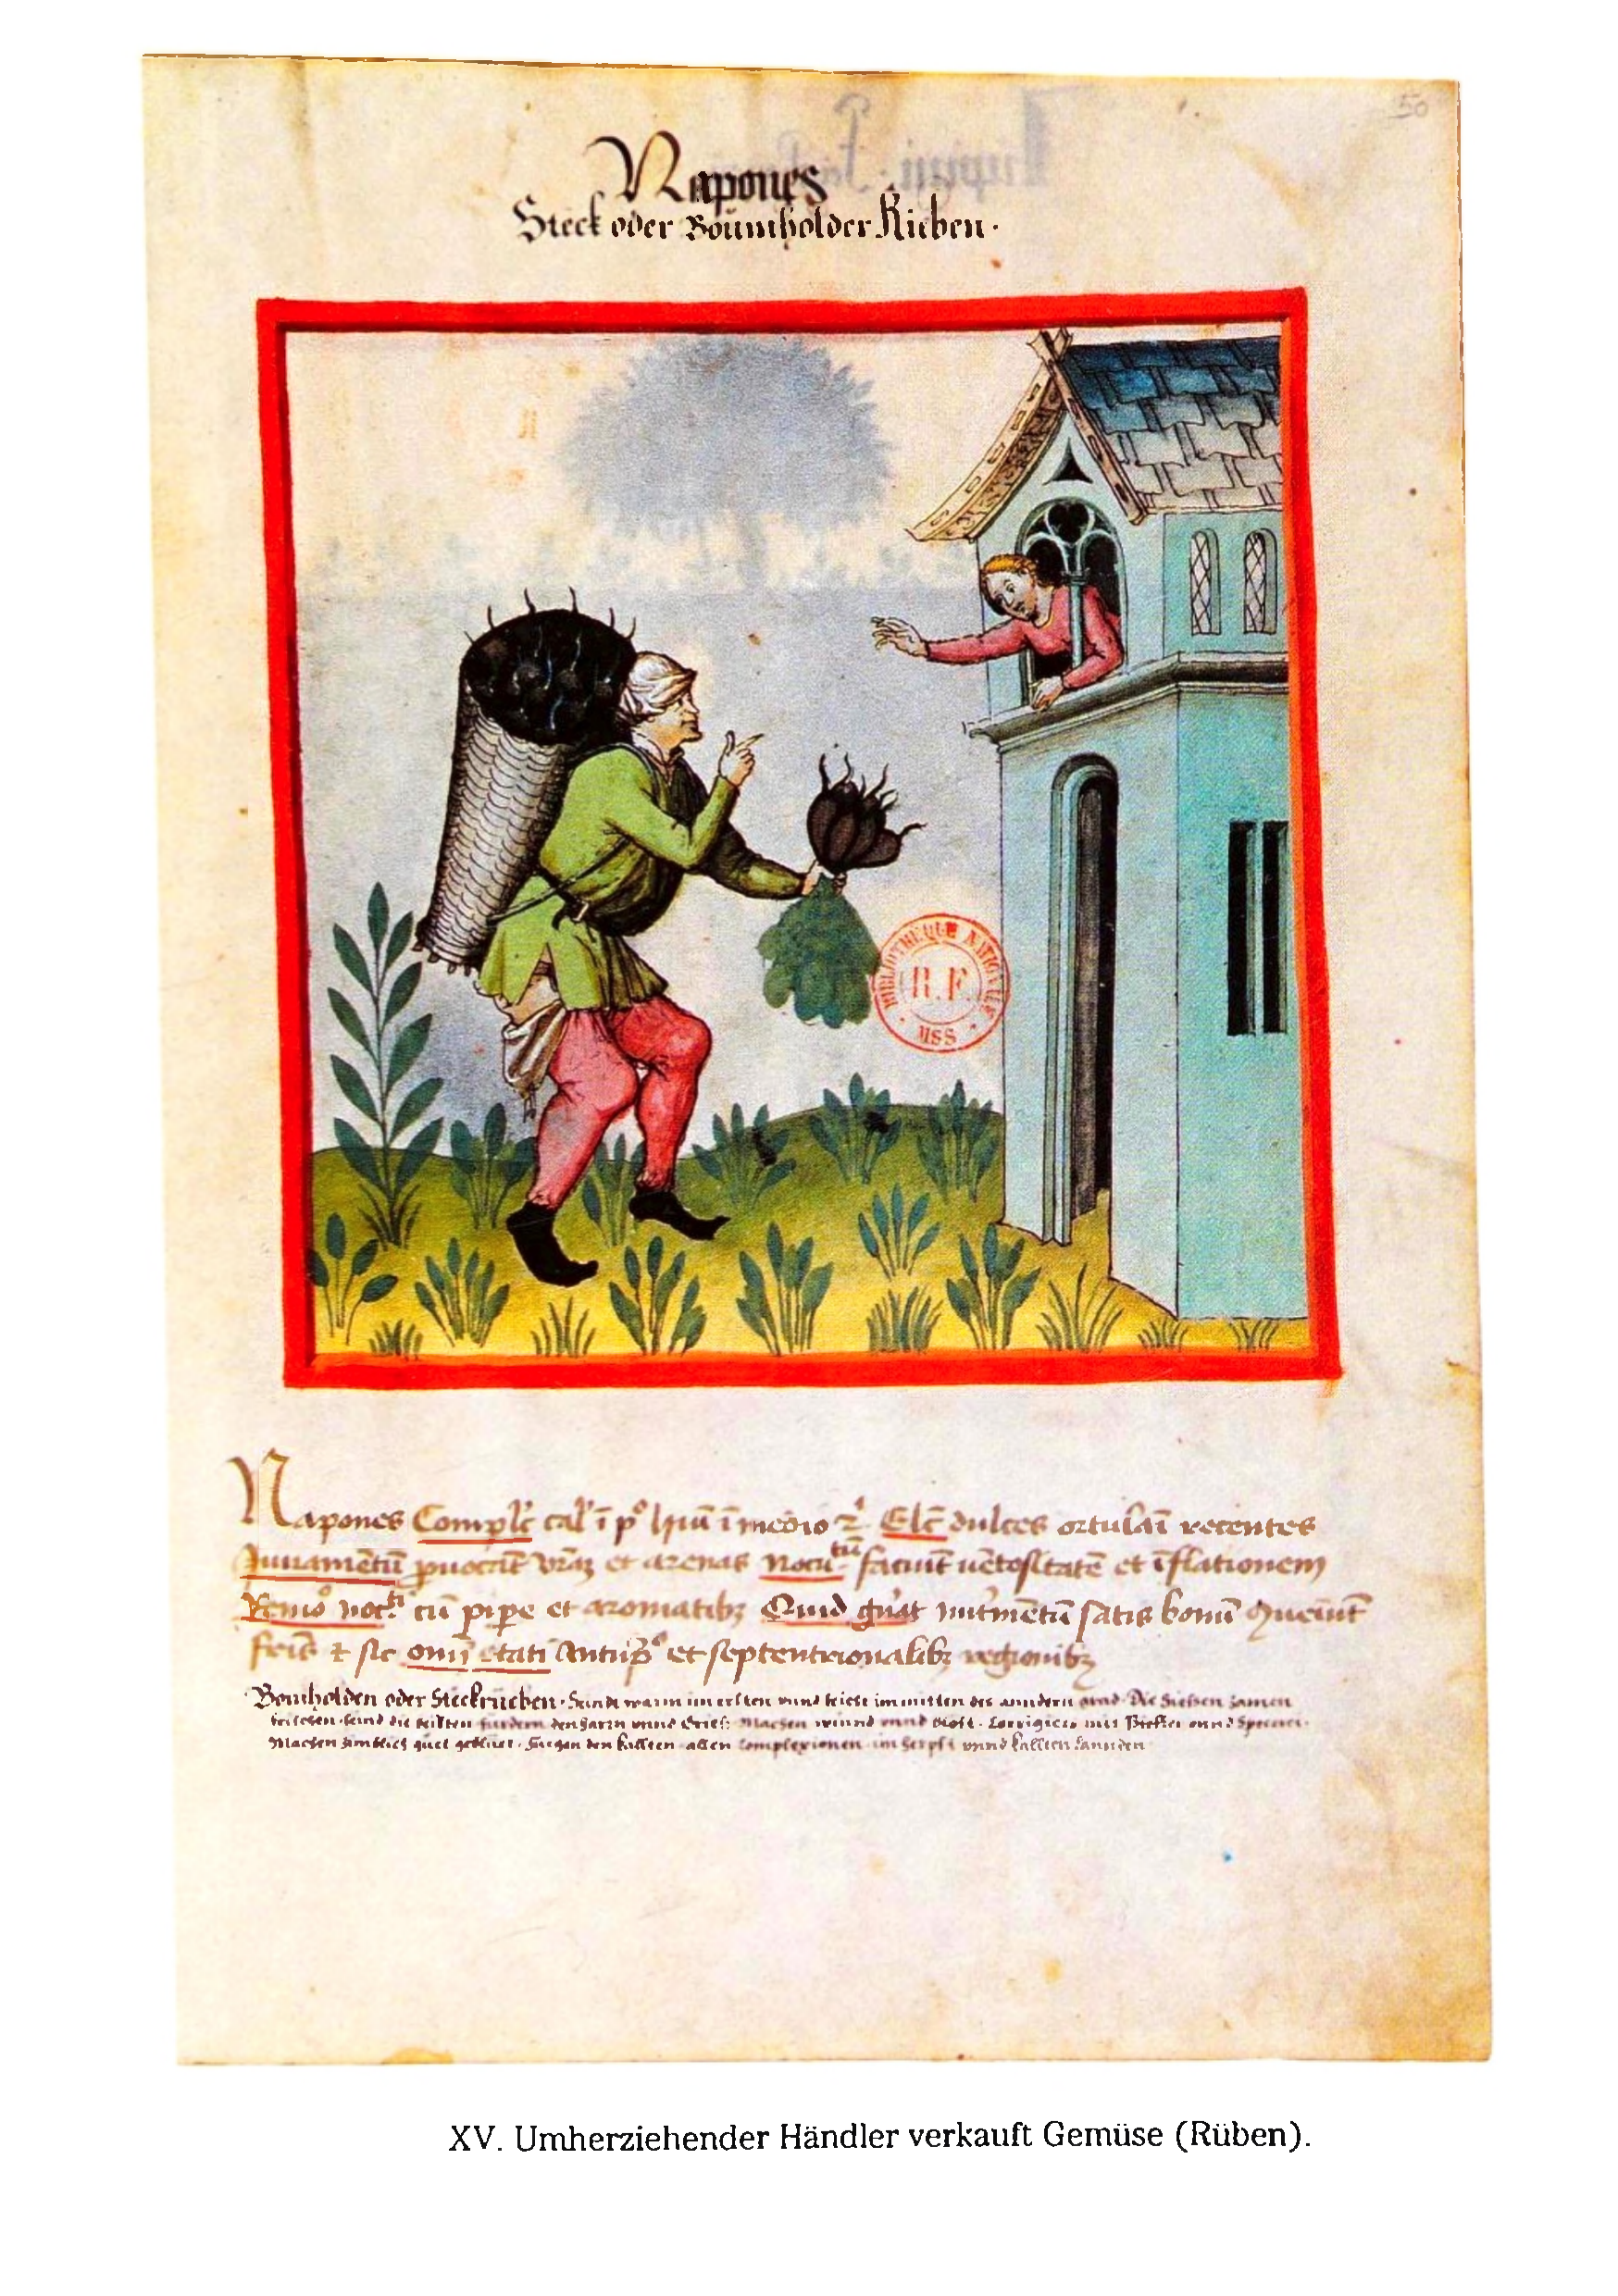 50
Napones
Steck oder Boumholder Rieben.
BIBLIOTHEQUE NATIONALE
R.F.
MSS
Napones Complc̄ cal' ī p° hūī ī medio 2. Elc̄ dulces ortulāī recentes
Iuuamētū ꝓuocāt vrāȝ et arenas Nocu tū faciūt uētositatē et īflationem
Remō noc ti cū pipe et aromatibȝ Quid gnāt nutmētū satis bonū ꝯueiūt
friē ⁊ sic omī etati Antūpo et septentrionalibȝ regionibȝ
Bomholden oder Steckrueben. Seindt warm im ersten vnnd feicht im mitten des anndern grad. Die Siessen zamen
frischen seind die besten furdern den harm vnnd Grieß Machen winnd vnnd bläst. Corrigiers mit Pfeffer vnnd Specerei.
Machen zimblich guet geblüet. fuegen den kallten allen Complexionen im herpst vnnd kallten Lannden
XV. Umherziehender Händler verkauft Gemüse (Rüben).